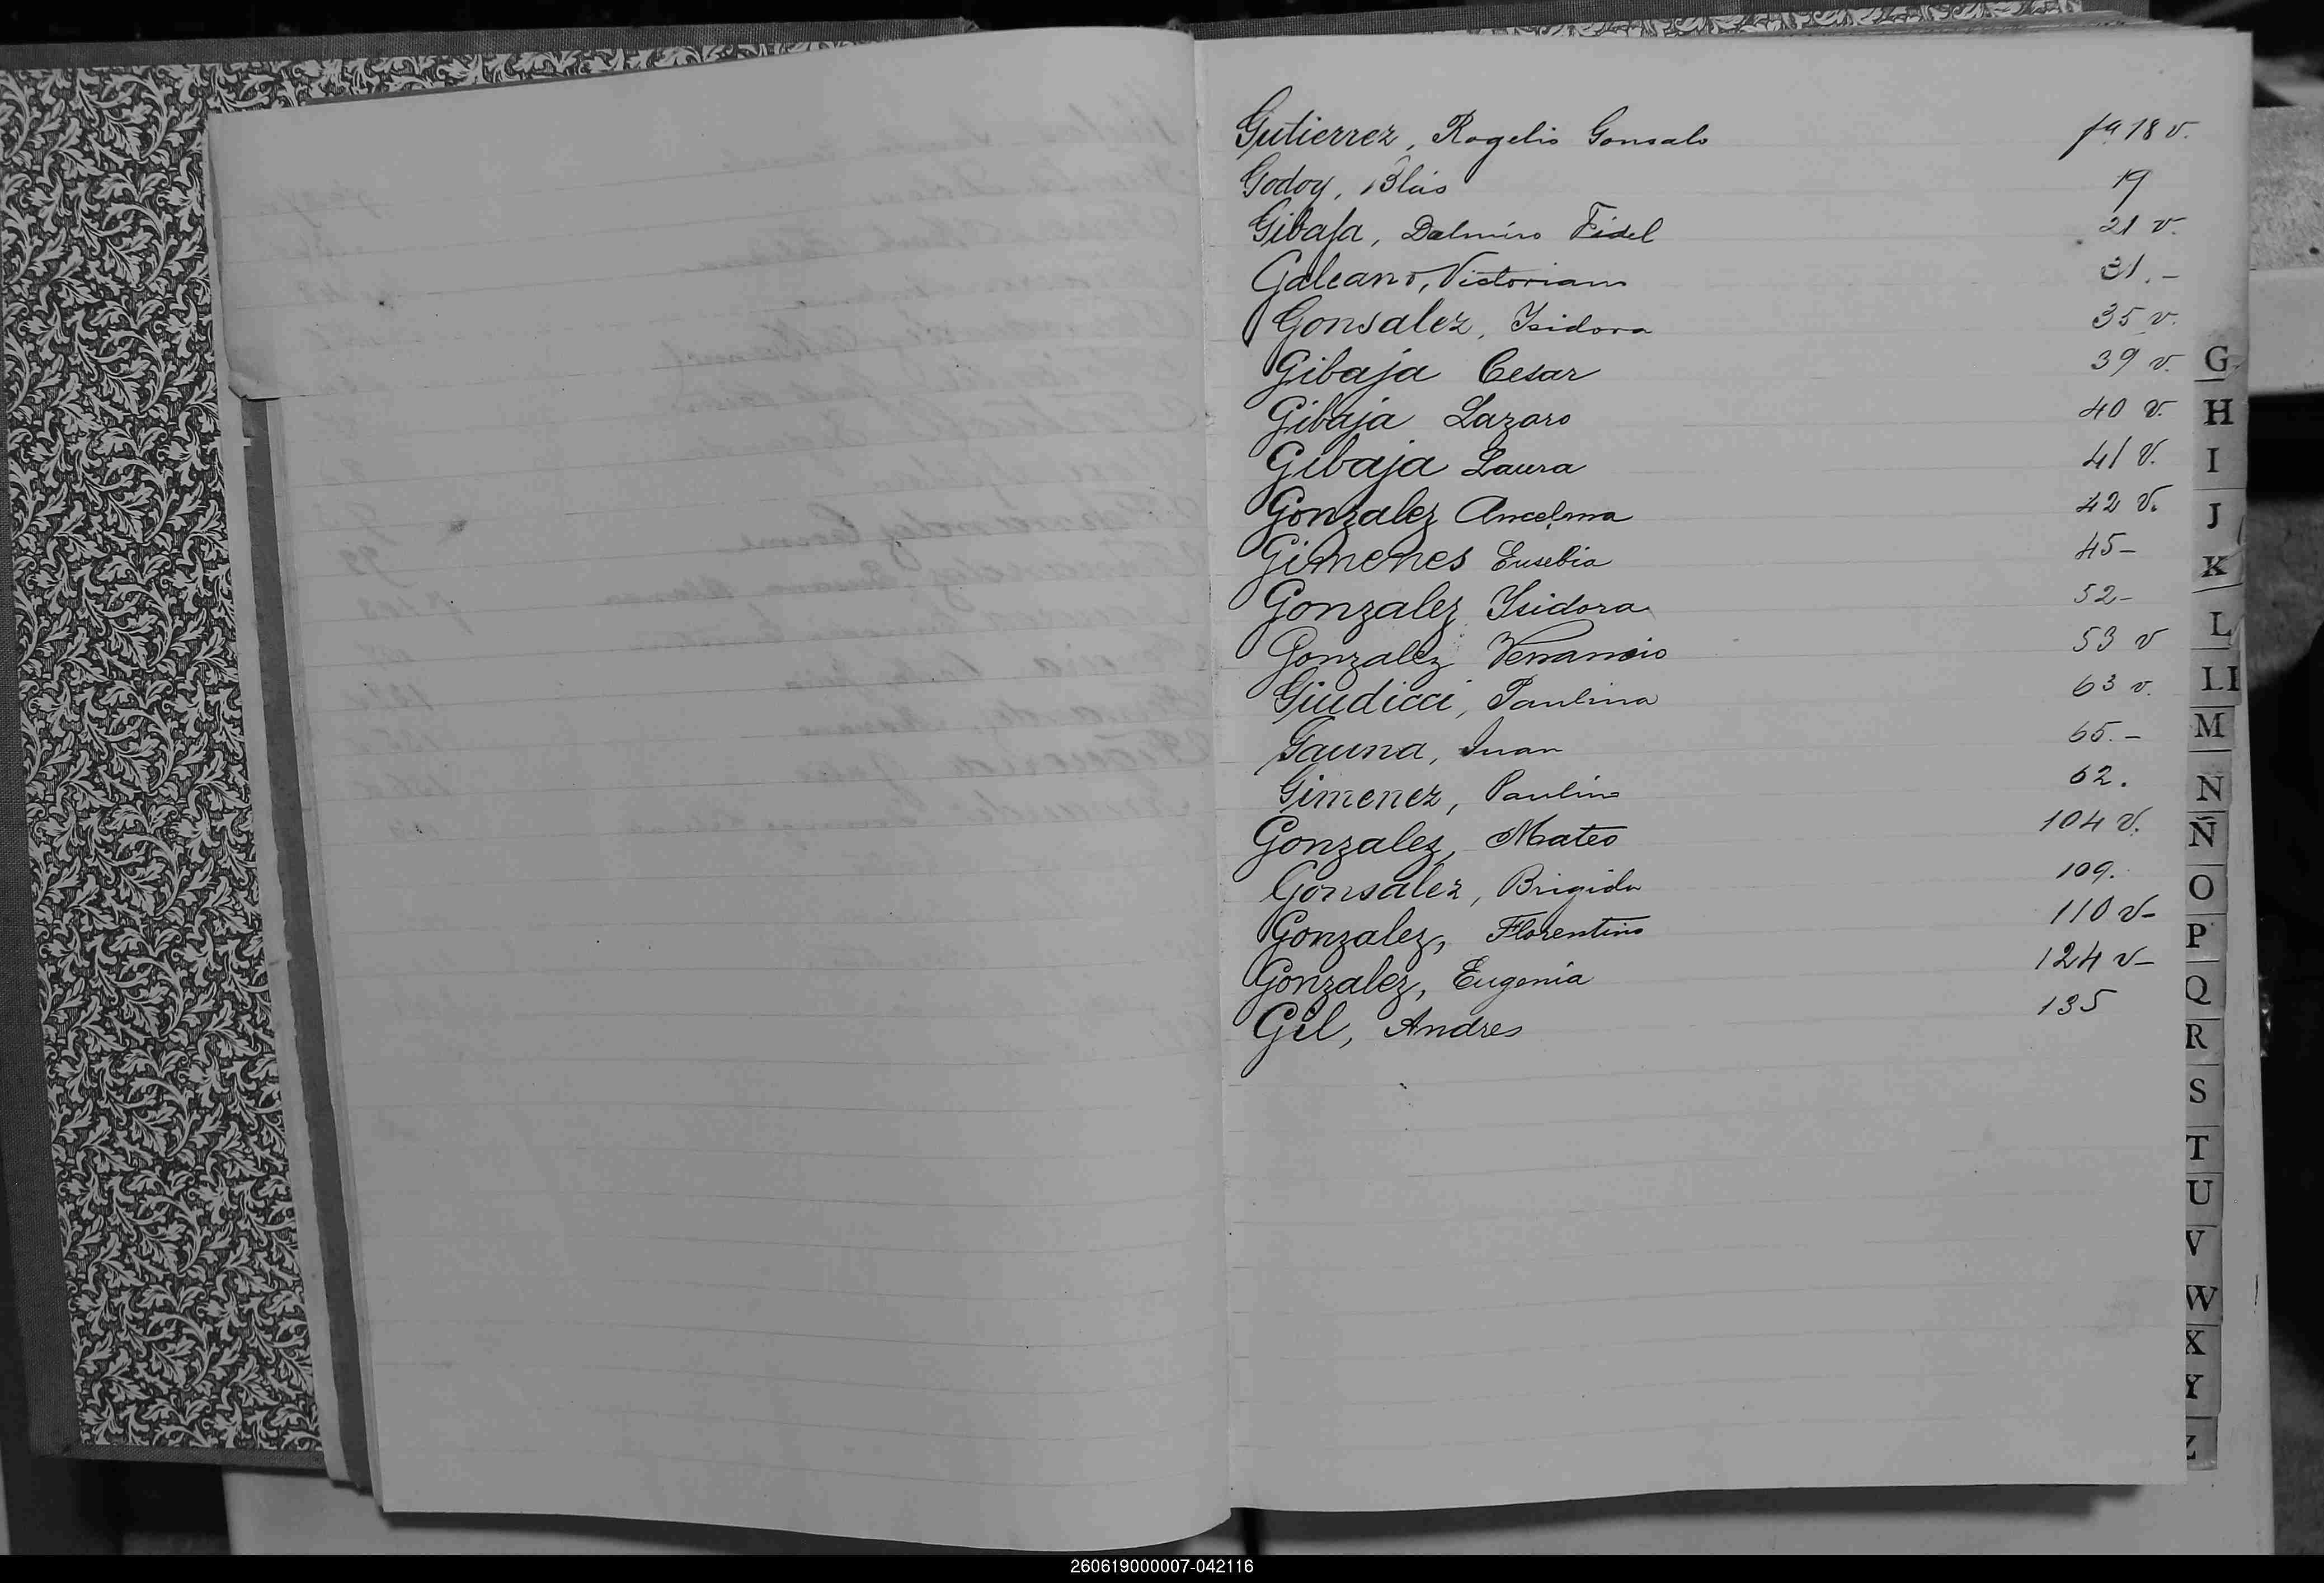 Gutierrez, Rogelio Gonsalo fº 18 v.
Godoy, Blás 19
Gibaja, Dalmiro Fidel 21 v.
Galeano, Victoriano 31.-
Gonsalez, Isidora 35 v.
Gibaja Cesar 39 v.
Gibaja Lazaro 40 v.
Gibaja Laura 41 v.
Gonzalez Ancelma 42 v.
Gimenes Eusebia 45-
Gonzalez Isidora 52-
Gonzalez Venancio 53 v
Giudicci, Paulina 63 v.
Gauna, Juan 65.-
Gimenez, Paulino 62.
Gonzalez, Mateo 104 v.
Gonsalez, Brigida 109.
Gonzalez, Florentino 110 v-
Gonzalez, Eugenia 124 v-
Gil, Andres 135
G
H
I
J
K
L
LL
M
N
Ñ
O
P
Q
R
S
T
U
V
W
X
Y
Z
260619000007-042116